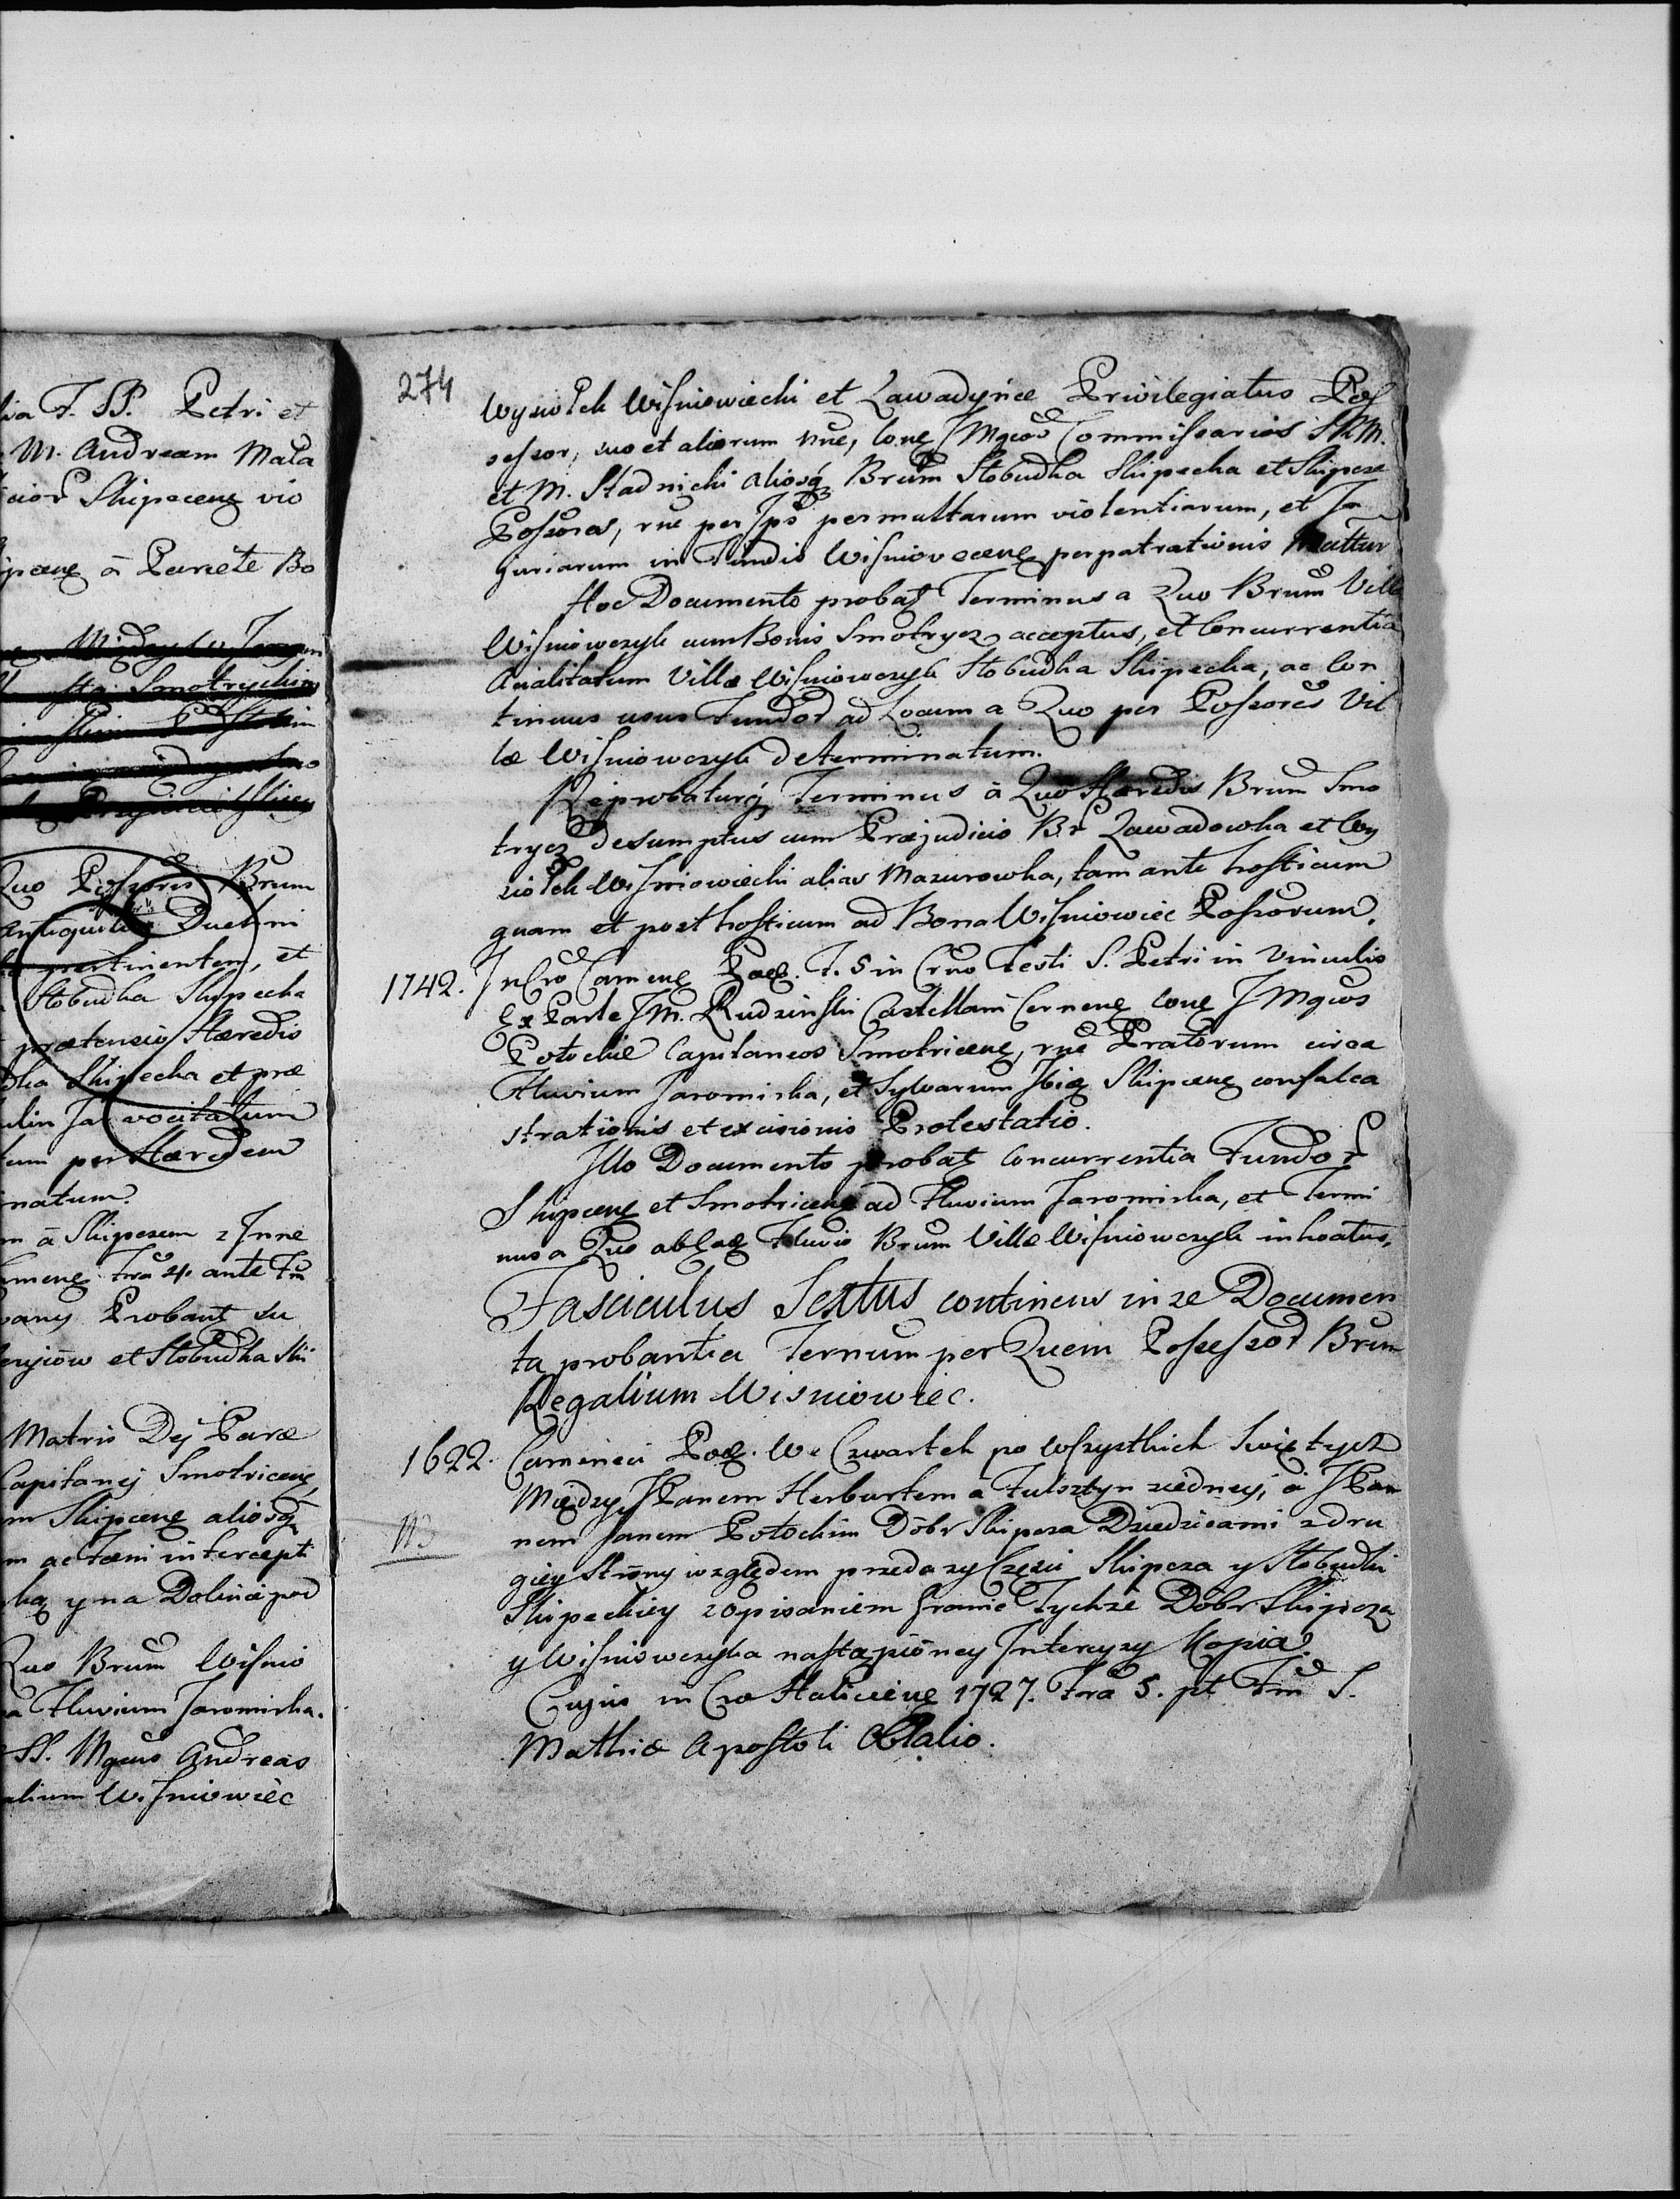 lia F. SS. Petri et
M. Andream Mala
cior Skipecens vio
ipcens â Pariete Bo
Smotryckim
Quo Possoris Brum
antiquitus Duchni
pertinentem, et
Słobudka Skipecka
prætensio Hæredis
dka Skipecka et præ
ulin Jar vocitatum
tum per Hæredem
natum.
m â Skipezem z Inne
mene. Fra 4. ante Fm
Probant su
et Słobudka Ski
Matris Dej Paræ
Capitanej Smotricens
m Skipcens aliosq
m ac Fœni intercepti
ką y na Dolinie pod
Quo Brum Wisnio
a Fluvium Jaromirka.
SS. Mgcus Andreas
alium Wisniowiec
274
Wysiołek Wisniowiecki et Zawadynce Privilegiatus Pos
sessor, suo et aliorum nne, cone IMgcos Commissarios SRM.
et M. Stadnicki aliosq Brum Słobudka Skipecka et Skipcze
Possores, rne per Ipso permultarum violentiarum, et In
juriarum in Fundis Wisniovecens perpatrationis Mattur
Hoc Documento probat Terminus a Quo Brum Villæ
Wisniowczyk cum Bonis Smotrycz acceptus, et Concurrentia
Avalitatum Villæ Wisniowczyk Słobudka Skipecka, ac Con
tinuus usus Fundor ad Locum a Quo per Possores Vil
læ Wisniowczyk determinatum.
Reprobaturq Terminus â Quo Hæredis Brum Smo
trycz desumptus cum Præjudicio Br Zawadowka et Wy
siołek Wisniowiecki alias Mazurowka, tam ante hosticum
quam et post hosticum ad Bona Wisniowiec Possorum.
1742. In Cro Camene Pod. F. 5 in Crno Festi S. Petri in Vinculis
Ex Parte IM. Rudzinski Castellani Cernene cone IMgcos
Potockie Capitaneos Smotricens, rne Pratorum circa
Fluvium Jaromirka, et Sylvarum Ibiq Skipcens confalca
strationis et excisionis Protestatio.
Illo Documento probat Concurrentia Fundor
Skipcens et Smotricens ad Fluvium Jaromirka, et Termi
nus a Quo ab Fluvio Brum Villæ Wisniowczyk inhoatus.
Fasciculus Sextus continens in se Documen
ta probantia Ternum per Quem Possessor Brum
Regalium Wisniowiec.
1622. Camineci Pod. We Czwartek po Wszystkich Swiętych
Między JPanem Herburtem a Fulsztyn z iedney, â JPan
nem Janem Potockim Dóbr Skipcza Dziedzicami z dru
giey Strony względem przedazy Części Skipcza y Słobudki
Skipeckiey z opisaniem Granic Tychże Dóbr Skipcza
y Wisniowczyka nastąpioney Intercyzy Kopia.
Cujus in Cro Haliciene 1727. Fra 5. pt Fm S.
Mathiæ Apostoli Oblatio.